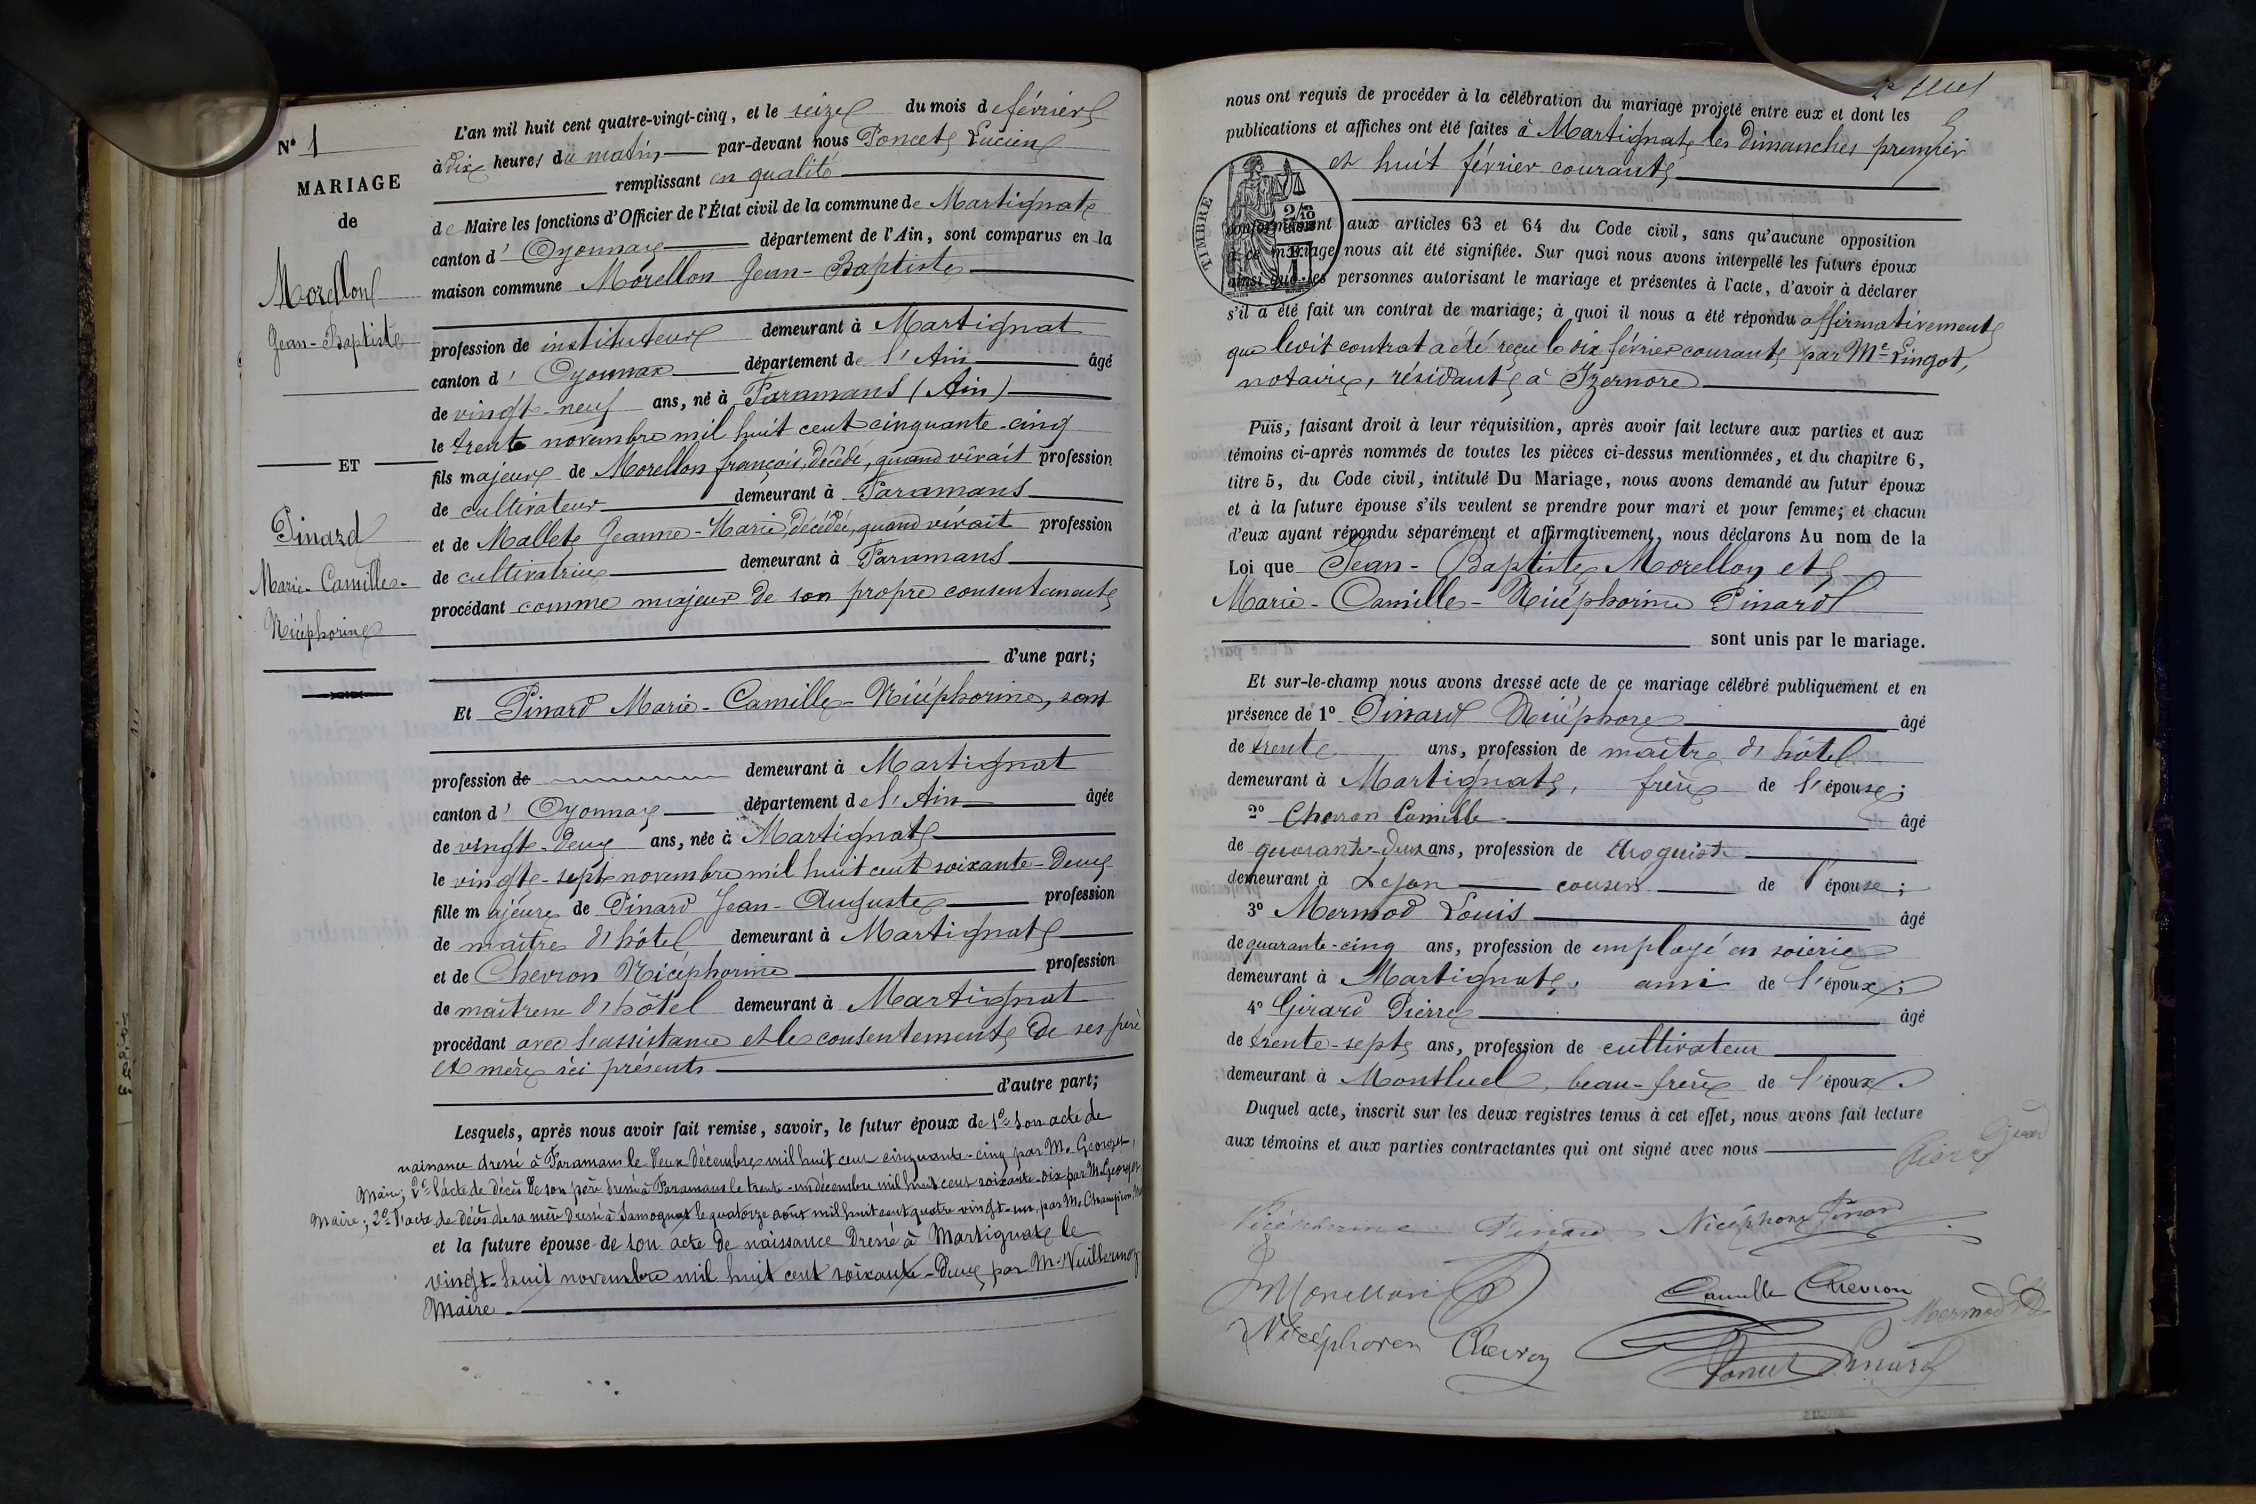 N° 1
MARIAGE
de
Morellon
Jean-Baptiste
ET
Pinard
Marie-Camille-
Nicéphorine
L'an mil huit cent quatre-vingt-cinq, et le seize du mois de février
à dix heures du matin par-devant nous Poncet Lucien
remplissant en qualité
de Maire les fonctions d'Officier de l'État civil de la commune de Martignat
canton d' Oyonnax département de l'Ain, sont comparus en la
maison commune Morellon Jean-Baptiste
profession de instituteur demeurant à Martignat
canton d' Oyonnax département de l'Ain âgé
de vingt-neuf ans, né à Faramans (Ain)
le trente novembre mil huit cent cinquante-cinq
fils majeur de Morellon françois, décédé, quand vivait profession
de cultivateur demeurant à Faramans
et de Mallet Jeanne-Marie, décédée, quand vivait profession
de cultivatrice demeurant à Faramans
procédant comme majeur de son propre consentement
d'une part;
Et Pinard Marie-Camille-Nicéphorine, sans
profession de demeurant à Martignat
canton d' Oyonnax département de l'Ain âgée
de vingt-deux ans, née à Martignat
le vingt-sept novembre mil huit cent soixante-deux
fille majeure de Pinard Jean-Auguste profession
de maître d'hôtel demeurant à Martignat
et de Chevron Nicéphorine profession
de maîtresse d'hôtel demeurant à Martignat
procédant avec l'assistance et le consentement de ses père
et mère ici présents
d'autre part;
Lesquels, après nous avoir fait remise, savoir, le futur époux de 1° son acte de
naissance dressé à Faramans le deux décembre mil huit cent cinquante-cinq par M. Georges,
Maire; 2° l'acte de décès de son père dressé à Faramans le trente-un décembre mil huit cent soixante-dix par M. Georges
Maire; 2° l'acte de décès de sa mère dressé à Samognat le quatorze août mil huit cent quatre vingt-un, par M. Champion
et la future épouse de son acte de naissance dressé à Martignat le
vingt-huit novembre mil huit cent soixante-deux par M. Vuillermoz
Maire
nous ont requis de procéder à la célébration du mariage projeté entre eux et dont les
publications et affiches ont été faites à Martignat les dimanches premier
et huit février courant
TIMBRE
2/10
conformément aux articles 63 et 64 du Code civil, sans qu'aucune opposition
à ce mariage nous ait été signifiée. Sur quoi nous avons interpellé les futurs époux
ainsi que les personnes autorisant le mariage et présentes à l'acte, d'avoir à déclarer
s'il a été fait un contrat de mariage; à quoi il nous a été répondu affirmativement
que ledit contrat a été reçu le dix février courant par Me Lingot,
notaire, résidant à Izernore
Puis, faisant droit à leur réquisition, après avoir fait lecture aux parties et aux
témoins ci-après nommés de toutes les pièces ci-dessus mentionnées, et du chapitre 6,
titre 5, du Code civil, intitulé Du Mariage, nous avons demandé au futur époux
et à la future épouse s'ils veulent se prendre pour mari et pour femme; et chacun
d'eux ayant répondu séparément et affirmativement, nous déclarons Au nom de la
Loi que Jean-Baptiste Morellon et
Marie-Camille-Nicéphorine Pinard
sont unis par le mariage.
Et sur-le-champ nous avons dressé acte de ce mariage célébré publiquement et en
présence de 1° Pinard Nicéphore âgé
de trente ans, profession de maître d'hôtel
demeurant à Martignat, frère de l'épouse;
2° Chevron Camille âgé
de quarante-deux ans, profession de droguiste
demeurant à Lyon cousin de l'épouse;
3° Mermod Louis âgé
de quarante-cinq ans, profession de employé en soierie
demeurant à Martignat, ami de l'époux;
4° Girard Pierre âgé
de trente-sept ans, profession de cultivateur
demeurant à Montluel, beau-frère de l'époux.
Duquel acte, inscrit sur les deux registres tenus à cet effet, nous avons fait lecture
aux témoins et aux parties contractantes qui ont signé avec nous
Girard
Pierre
Nicéphorine Pinard Nicéphore Pinard
JMorellon
Camille Chevron
Mermod
Nicéphoren Chevron
Poncet Pinard